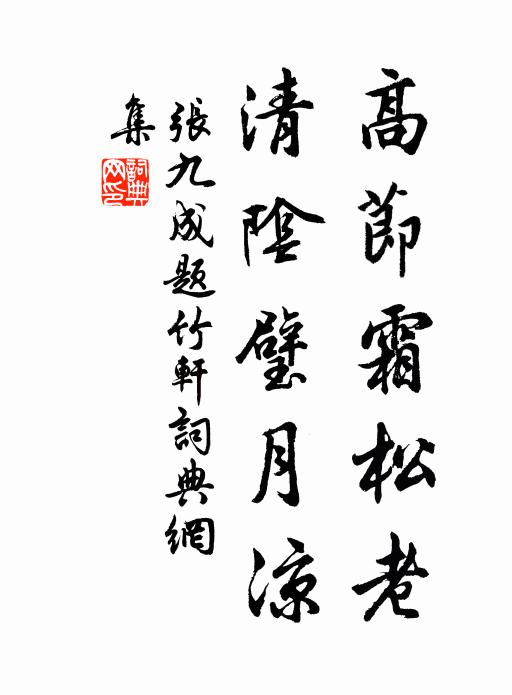 高節霜松老
清陰璧月涼
張九成題竹軒詞典網
集
詞典
网印